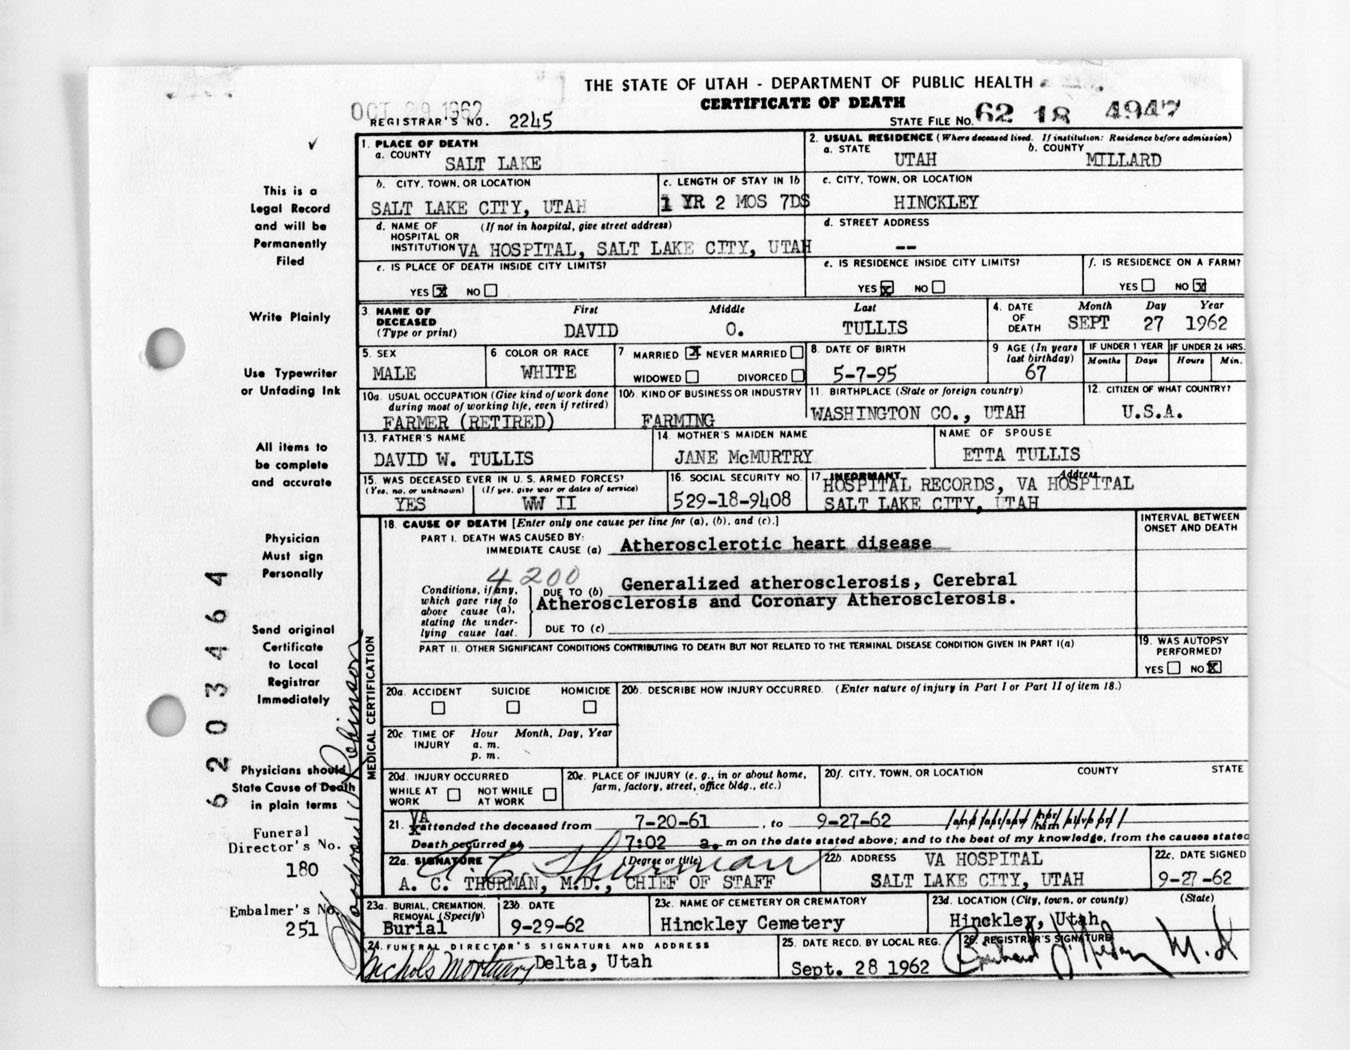 THE STATE OF UTAH - DEPARTMENT OF PUBLIC HEALTH
CERTIFICATE OF DEATH
OCT 29 1962
REGISTRAR'S NO. 2245
STATE FILE NO. 62 18 4947
This is a
Legal Record
and will be
Permanently
Filed
Write Plainly
Use Typewriter
or Unfading Ink
All items to
be complete
and accurate
Physician
Must sign
Personally
Send original
Certificate
to Local
Registrar
Immediately
Physicians should
State Cause of Death
in plain terms
Funeral
Director's No.
180
Embalmer's No.
251
6203464
Woodrow Robinson
1. PLACE OF DEATH
a. COUNTY SALT LAKE
2. USUAL RESIDENCE (Where deceased lived. If institution: Residence before admission)
a. STATE UTAH b. COUNTY MILLARD
b. CITY, TOWN, OR LOCATION
SALT LAKE CITY, UTAH
c. LENGTH OF STAY IN 1b
1 YR 2 MOS 7DS
c. CITY, TOWN, OR LOCATION
HINCKLEY
d. NAME OF HOSPITAL OR INSTITUTION (If not in hospital, give street address)
VA HOSPITAL, SALT LAKE CITY, UTAH
d. STREET ADDRESS
--
e. IS PLACE OF DEATH INSIDE CITY LIMITS?
YES X NO
e. IS RESIDENCE INSIDE CITY LIMITS?
YES X NO
f. IS RESIDENCE ON A FARM?
YES NO X
3 NAME OF DECEASED (Type or print)
First Middle Last
DAVID O. TULLIS
4. DATE OF DEATH Month Day Year
SEPT 27 1962
5. SEX
MALE
6 COLOR OR RACE
WHITE
7 MARRIED X NEVER MARRIED
WIDOWED DIVORCED
8. DATE OF BIRTH
5-7-95
9 AGE (In years last birthday)
67
IF UNDER 1 YEAR IF UNDER 24 HRS.
Months Days Hours Min.
10a. USUAL OCCUPATION (Give kind of work done during most of working life, even if retired)
FARMER (RETIRED)
10b. KIND OF BUSINESS OR INDUSTRY
FARMING
11. BIRTHPLACE (State or foreign country)
WASHINGTON CO., UTAH
12. CITIZEN OF WHAT COUNTRY?
U.S.A.
13. FATHER'S NAME
DAVID W. TULLIS
14. MOTHER'S MAIDEN NAME
JANE McMURTRY
NAME OF SPOUSE
ETTA TULLIS
15. WAS DECEASED EVER IN U. S. ARMED FORCES?
(Yes, no, or unknown) (If yes, give war or dates of service)
YES WW II
16. SOCIAL SECURITY NO.
529-18-9408
17 INFORMANT Address
HOSPITAL RECORDS, VA HOSPITAL
SALT LAKE CITY, UTAH
MEDICAL CERTIFICATION
18. CAUSE OF DEATH [Enter only one cause per line for (a), (b), and (c).]
INTERVAL BETWEEN ONSET AND DEATH
PART I. DEATH WAS CAUSED BY:
IMMEDIATE CAUSE (a) Atherosclerotic heart disease
4200
Conditions, if any, which gave rise to above cause (a), stating the underlying cause last.
DUE TO (b) Generalized atherosclerosis, Cerebral
Atherosclerosis and Coronary Atherosclerosis.
DUE TO (c)
PART II. OTHER SIGNIFICANT CONDITIONS CONTRIBUTING TO DEATH BUT NOT RELATED TO THE TERMINAL DISEASE CONDITION GIVEN IN PART I(a)
19. WAS AUTOPSY PERFORMED?
YES NO X
20a. ACCIDENT SUICIDE HOMICIDE
20b. DESCRIBE HOW INJURY OCCURRED. (Enter nature of injury in Part I or Part II of item 18.)
20c. TIME OF INJURY Hour Month, Day, Year
a. m.
p. m.
20d. INJURY OCCURRED
WHILE AT WORK NOT WHILE AT WORK
20e. PLACE OF INJURY (e. g., in or about home, farm, factory, street, office bldg., etc.)
20f. CITY, TOWN, OR LOCATION COUNTY STATE
21. VA attended the deceased from 7-20-61, to 9-27-62
Death occurred at 7:02 a. m on the date stated above; and to the best of my knowledge, from the causes stated
22a. SIGNATURE (Degree or title)
A. C. Thurman
A. C. THURMAN, M.D., CHIEF OF STAFF
22b. ADDRESS VA HOSPITAL
SALT LAKE CITY, UTAH
22c. DATE SIGNED
9-27-62
23a. BURIAL, CREMATION, REMOVAL (Specify)
Burial
23b. DATE
9-29-62
23c. NAME OF CEMETERY OR CREMATORY
Hinckley Cemetery
23d. LOCATION (City, town, or county) (State)
Hinckley, Utah
24. FUNERAL DIRECTOR'S SIGNATURE AND ADDRESS
Nichols Mortuary Delta, Utah
25. DATE RECD. BY LOCAL REG.
Sept. 28 1962
26. REGISTRAR'S SIGNATURE
M.D.